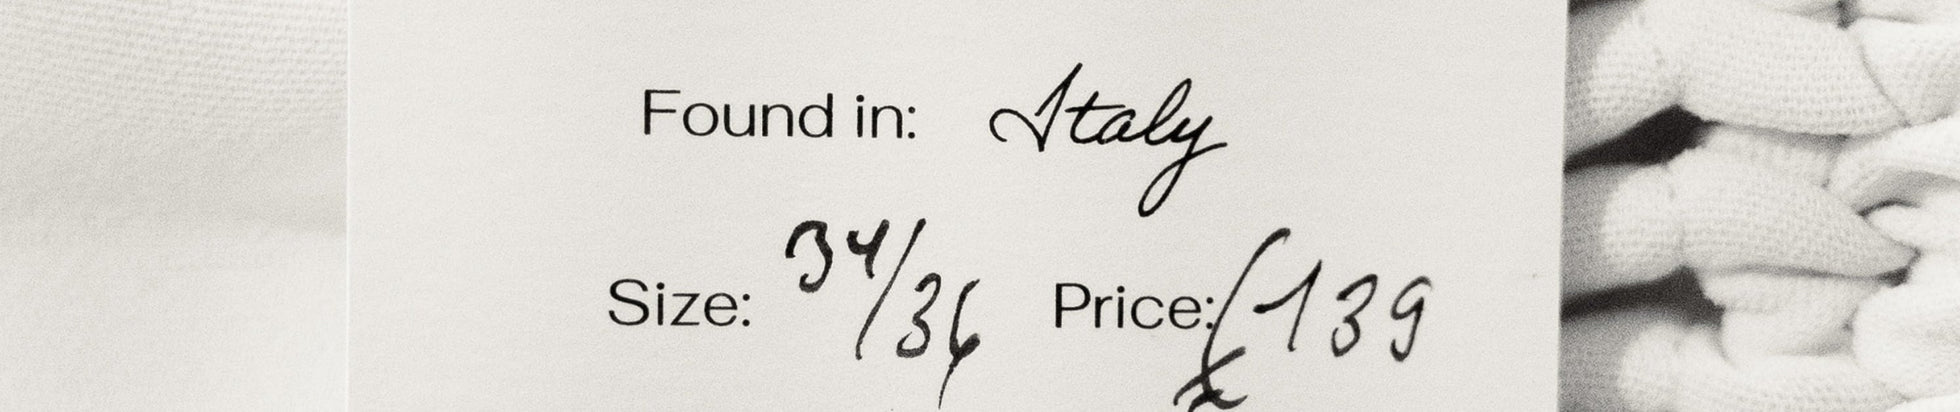 Found in: Italy
Size: 34/36 Price: £139